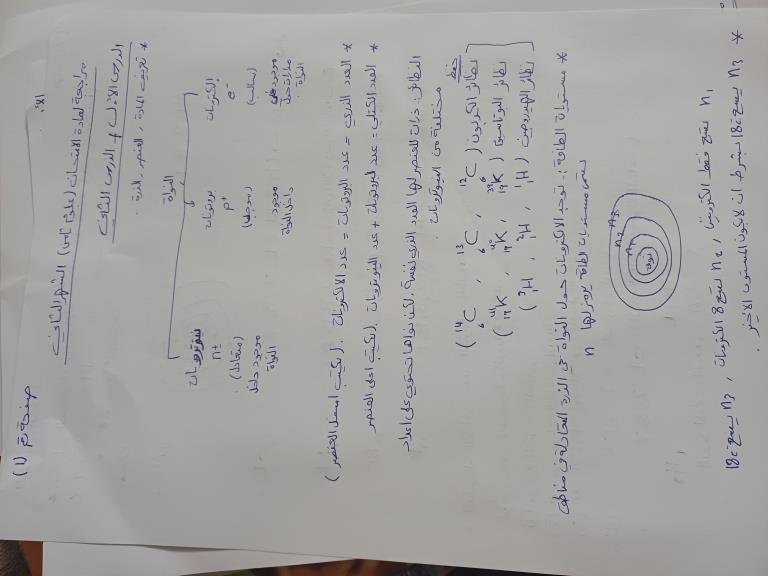 صفحة رقم (1)
الا
مراجعة لمادة الامتحان (علوم ثامن) الشهر الثاني
الدرس الاول + الدرس الثاني
* تعريف المادة، العنصر، الذرة.
الذرة
نيوترونات بروتونات إلكترونات
n± p+ e-
(متعادل) (موجب) (سالب)
موجود داخل النواة موجود داخل النواة موجود في مدارات حول النواة
* العدد الذري = عدد البروتونات = عدد الالكترونات. (يكتب اسفل العنصر)
* العدد الكتلي = عدد البروتونات + عدد النيوترونات (يكتب اعلى العنصر
النظائر: ذرات للعنصر لها العدد الذري نفسه لكن نواها تحتوي على اعداد
مختلفة من النيوترونات.
حفظ
نظائر الكربون ( ¹²C , ¹³₆C , ¹⁴₆C )
نظائر البوتاسيوم ( ³⁹₁₉K , ⁴⁰₁₉K , ⁴¹₁₉K )
نظائر الهيدروجين ( ¹₁H , ²₁H , ³₁H )
* مستويات الطاقة:- توجد الالكترونات حول النواة في الذرة المتعادلة في مناطق
تسمى مستويات الطاقة يرمز لها n
نواة n1 n2 n3
n1 تتسع فقط الكترونين, n2 تتسع 8 الكترونات, n3 يتسع 18e
* n3 يتسع 18e بشرط ان لا يكون المستوى الاخير.